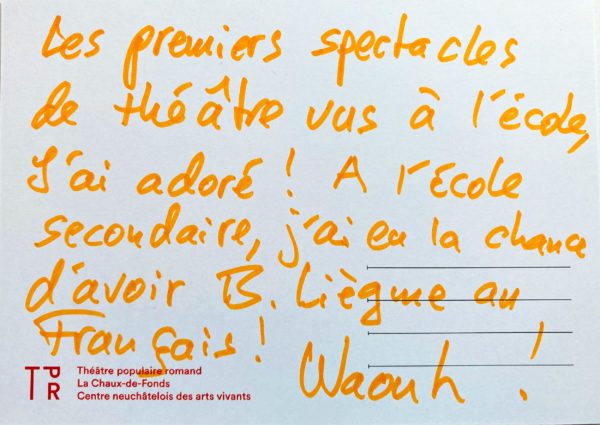 Les premiers spectacles
de théâtre vus à l'école,
J'ai adoré ! A l'école
secondaire, j'ai eu la chance
d'avoir B. Liègme au
Français !
Waouh !
TPR
Théâtre populaire romand
La Chaux-de-Fonds
Centre neuchâtelois des arts vivants